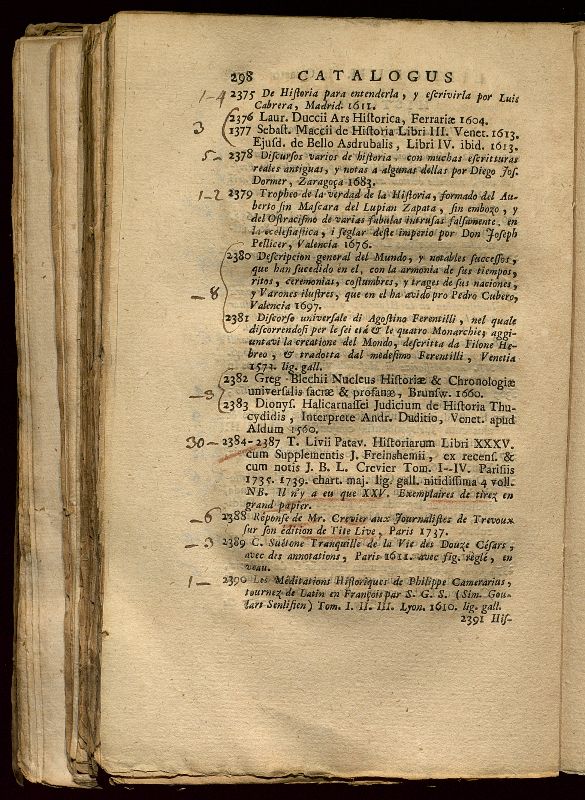 298 CATALOGUS
1-4 2375 De Historia para entenderla, y escrivirla por Luis
Cabrera, Madrid. 1611.
2376 Laur. Duccii Ars Historica, Ferrariæ 1604.
3 1377 Sebast. Maccii de Historia Libri III. Venet. 1613.
Ejusd. de Bello Asdrubalis, Libri IV. ibid. 1613.
5- 2378 Discursos varios de historia, con muchas escritturas
reales antiguas, y notas a algunas dellas por Diego Jos.
Dormer, Zaragoça 1683.
1-2 2379 Tropheo de la verdad de la Historia, formado del Au-
berto sin Mascara del Lupian Zapata, sin embozo, y
del Ostracismo de varias fabulas intrusas falsamente en
la ecclesiastica, i seglar deste imperio por Don Joseph
Pellicer, Valencia 1676.
2380 Descripcion general del Mundo, y notables successos,
que han sucedido en el, con la armonia de sus tiempos,
ritos, ceremonias, costumbres, y trages de sus naciones,
-8 y Varones ilustres, que en el ha avido pro Pedro Cubero,
Valencia 1697.
2381 Discorso universale di Agostino Ferentilli, nel quale
discorrendosi per le sei etá & le quatro Monarchie, aggi-
untavi la creatione del Mondo, descritta da Filone He-
breo, & tradotta dal medesimo Ferentilli, Venetia
1573. lig. gall.
2382 Greg. Blechii Nucleus Historiæ & Chronologiæ
-3 universalis sacræ & profanæ, Brunsw. 1660.
2383 Dionys. Halicarnassei Judicium de Historia Thu-
cydidis, Interprete Andr. Duditio, Venet. apud
Aldum 1560.
30- 2384-2387 T. Livii Patav. Historiarum Libri XXXV.
cum Supplementis J. Freinshemii, ex recens. &
cum notis J. B. L. Crevier Tom. I-IV. Parisiis
1735. 1739. chart. maj. lig. gall. nitidissima 4 voll.
NB. Il n'y a eu que XXV. Exemplaires de tirez en
grand papier.
-6 2388 Réponse de Mr. Crevier aux Journalistes de Trevoux
sur son édition de Tite Live, Paris 1737.
-3 2389 C. Suétone Tranquille de la Vie des Douze Césars,
avec des annotations, Paris 1611. avec fig. reglé, en
veau.
1- 2390 Les Méditations Historiques de Philippe Camerarius,
tournez de Latin en François par S. G. S. (Sim. Gou-
lart Senlisien) Tom. I. II. III. Lyon. 1610. lig. gall.
2391 His-